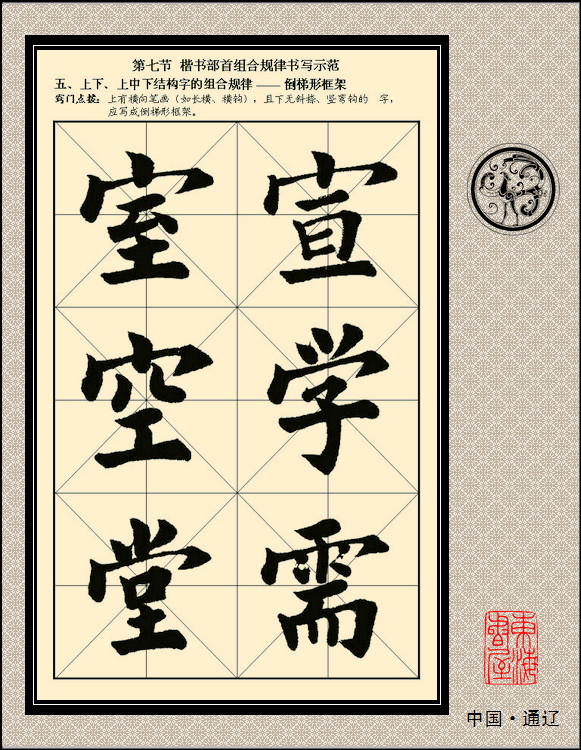 第七节 楷书部首组合规律书写示范
五、上下、上中下结构字的组合规律 —— 倒梯形框架
窍门点拨：上有横向笔画（如长横、横钩），且下无斜捺、竖弯钩的 字，
应写成倒梯形框架。
室 宣
空 学
堂 需
東海
雲屋
中国·通辽